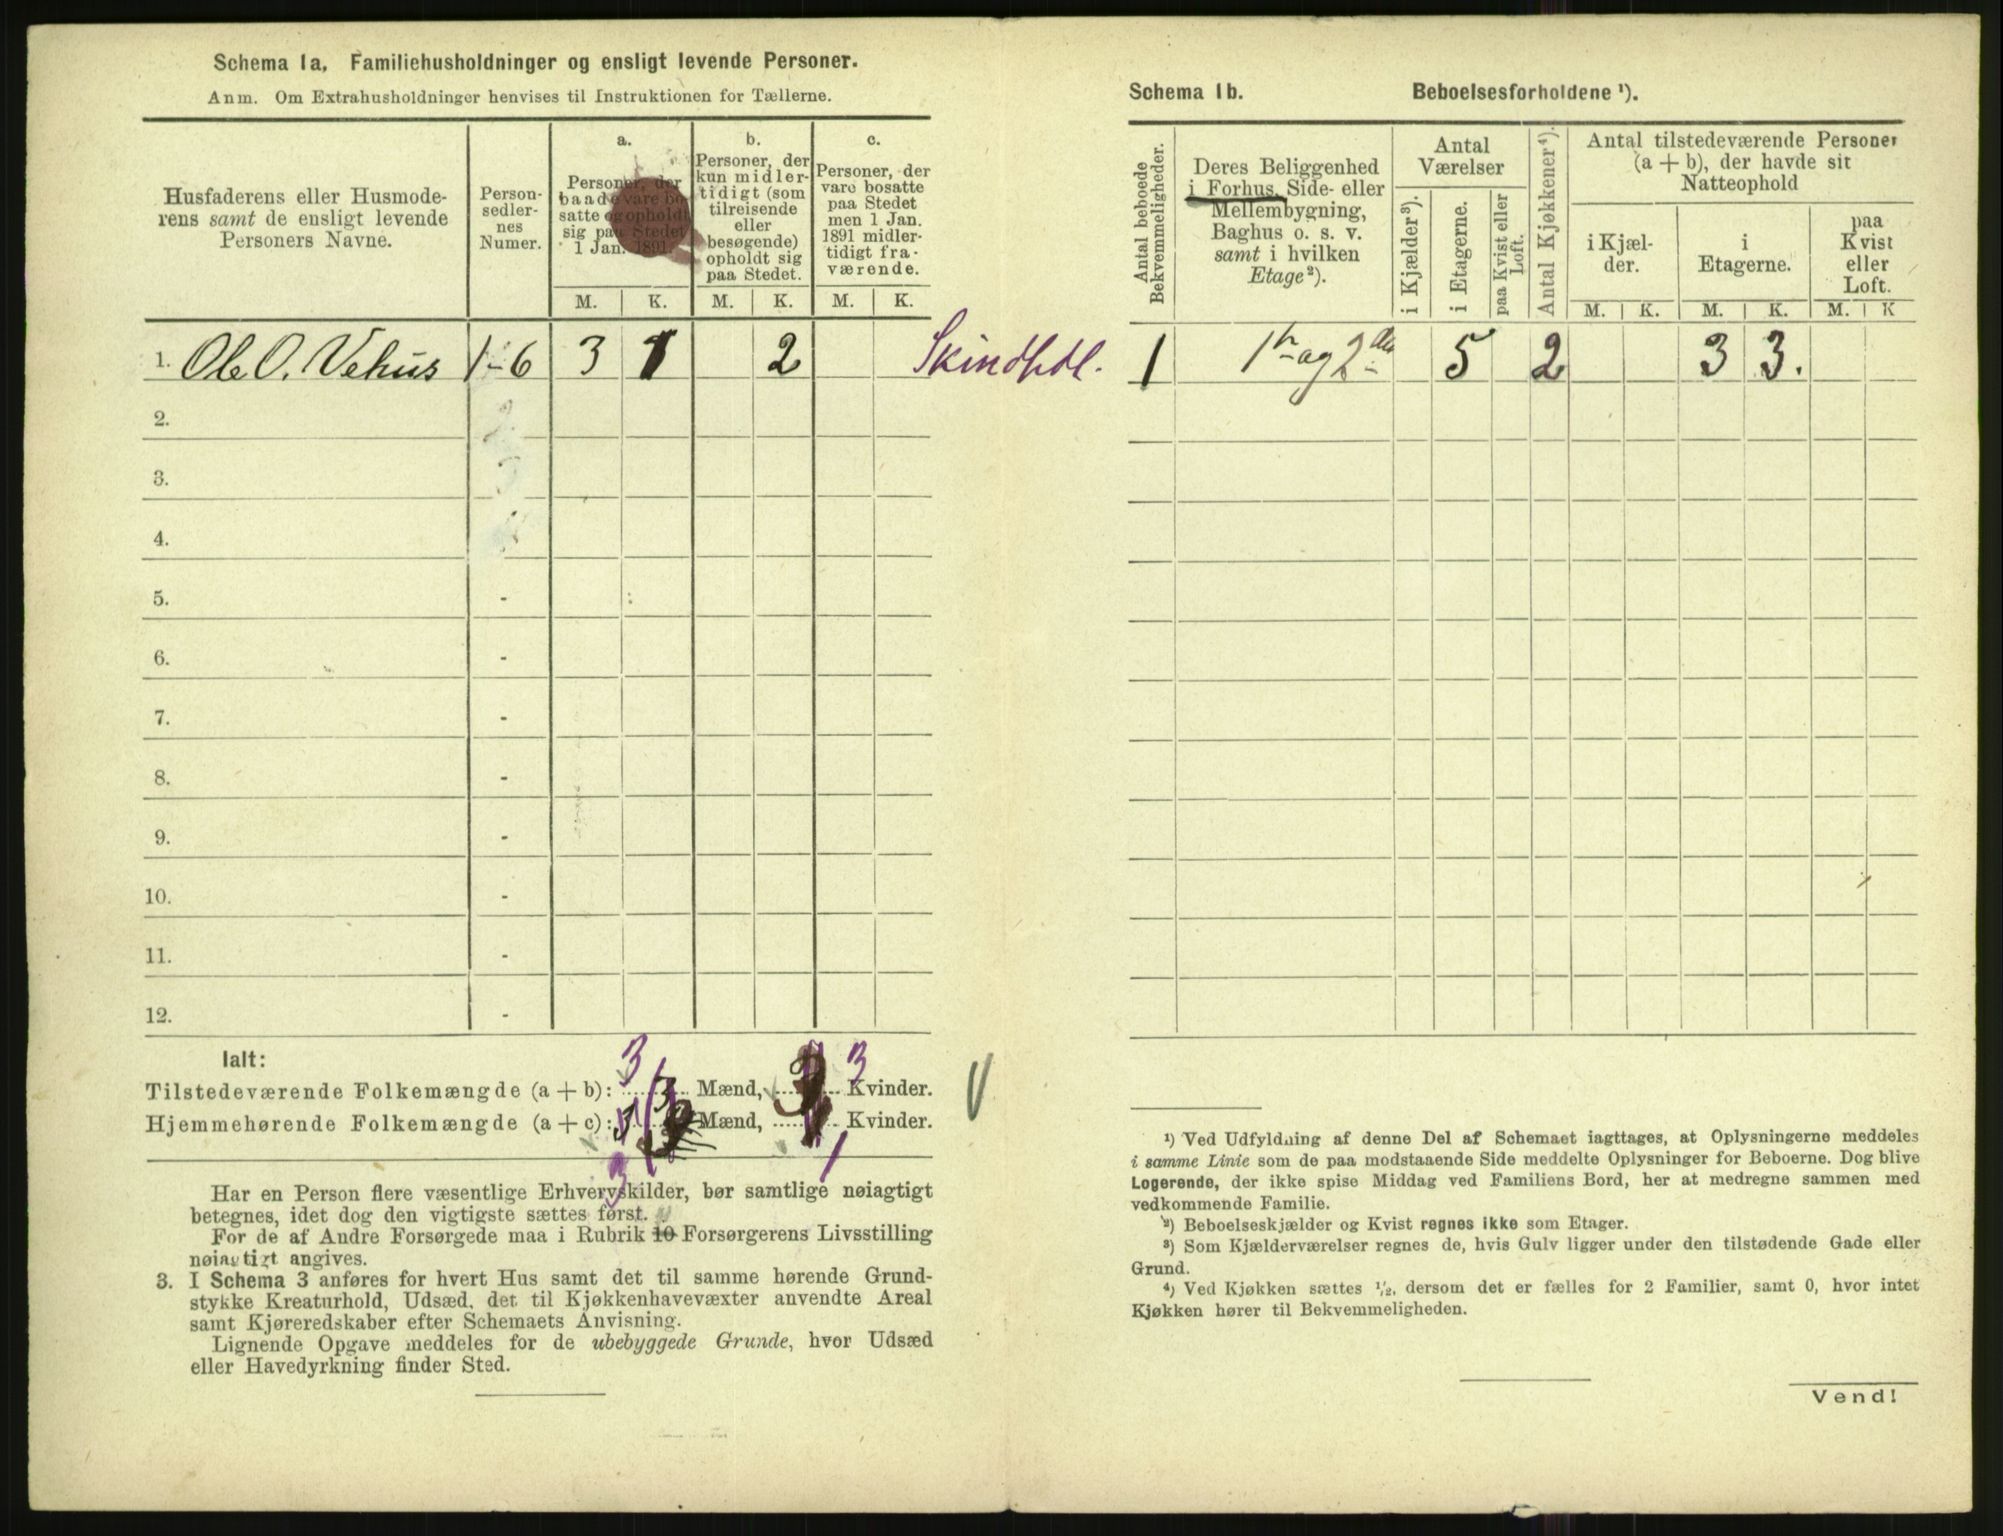 Schema 1a. Familiehusholdninger og ensligt levende Personer.
Anm. Om Extrahusholdninger henvises til Instruktionen for Tællerne.
Husfaderens eller Husmode-
rens samt de ensligt levende
Personers Navne.
Person-
sedler-
nes
Numer.
a.
Personer, der
baade vare bo-
satte og opholdt
sig paa Stedet
1 Jan. 1891
b.
Personer, der
kun midler-
tidigt (som
tilreisende
eller
besøgende)
opholdt sig
paa Stedet.
c.
Personer, der
vare bosatte
paa Stedet
men 1 Jan.
1891 midler-
tidigt fra-
værende.
M. K. M. K. M. K.
1. Ole O. Vehus 1-6 3 1 2 Skindhdl.
2.
3.
4.
5. -
6. -
7. -
8. -
9. -
10. -
11. -
12. -
Ialt: 3 3
Tilstedeværende Folkemængde (a + b): 3 Mænd, 3 Kvinder.
Hjemmehørende Folkemængde (a + c): Mænd, Kvinder.
3 1
Har en Person flere væsentlige Erhvervskilder, bør samtlige nøiagtigt
betegnes, idet dog den vigtigste sættes først.
For de af Andre Forsørgede maa i Rubrik 10 Forsørgerens Livsstilling
nøiagtigt angives.
3. I Schema 3 anføres for hvert Hus samt det til samme hørende Grund-
stykke Kreaturhold, Udsæd, det til Kjøkkenhavevæxter anvendte Areal
samt Kjøreredskaber efter Schemaets Anvisning.
Lignende Opgave meddeles for de ubebyggede Grunde, hvor Udsæd
eller Havedyrkning finder Sted.
Schema 1b. Beboelsesforholdene ¹).
Antal beboede
Bekvemmeligheder.
Deres Beliggenhed
i Forhus, Side- eller
Mellembygning,
Baghus o. s. v.
samt i hvilken
Etage²).
Antal
Værelser
i Kjælder³).
i Etagerne.
paa Kvist eller
Loft.
Antal Kjøkkener⁴).
Antal tilstedeværende Personer
(a + b), der havde sit
Natteophold
i Kjæl-
der.
i
Etagerne.
paa
Kvist
eller
Loft.
M. K. M. K. M. K
1 1ste og 2den 5 2 3 3.
¹) Ved Udfyldning af denne Del af Schemaet iagttages, at Oplysningerne meddeles
i samme Linie som de paa modstaaende Side meddelte Oplysninger for Beboerne. Dog blive
Logerende, der ikke spise Middag ved Familiens Bord, her at medregne sammen med
vedkommende Familie.
²) Beboelseskjælder og Kvist regnes ikke som Etager.
³) Som Kjælderværelser regnes de, hvis Gulv ligger under den tilstødende Gade eller
Grund.
⁴) Ved Kjøkken sættes ½, dersom det er fælles for 2 Familier, samt 0, hvor intet
Kjøkken hører til Bekvemmeligheden.
Vend!